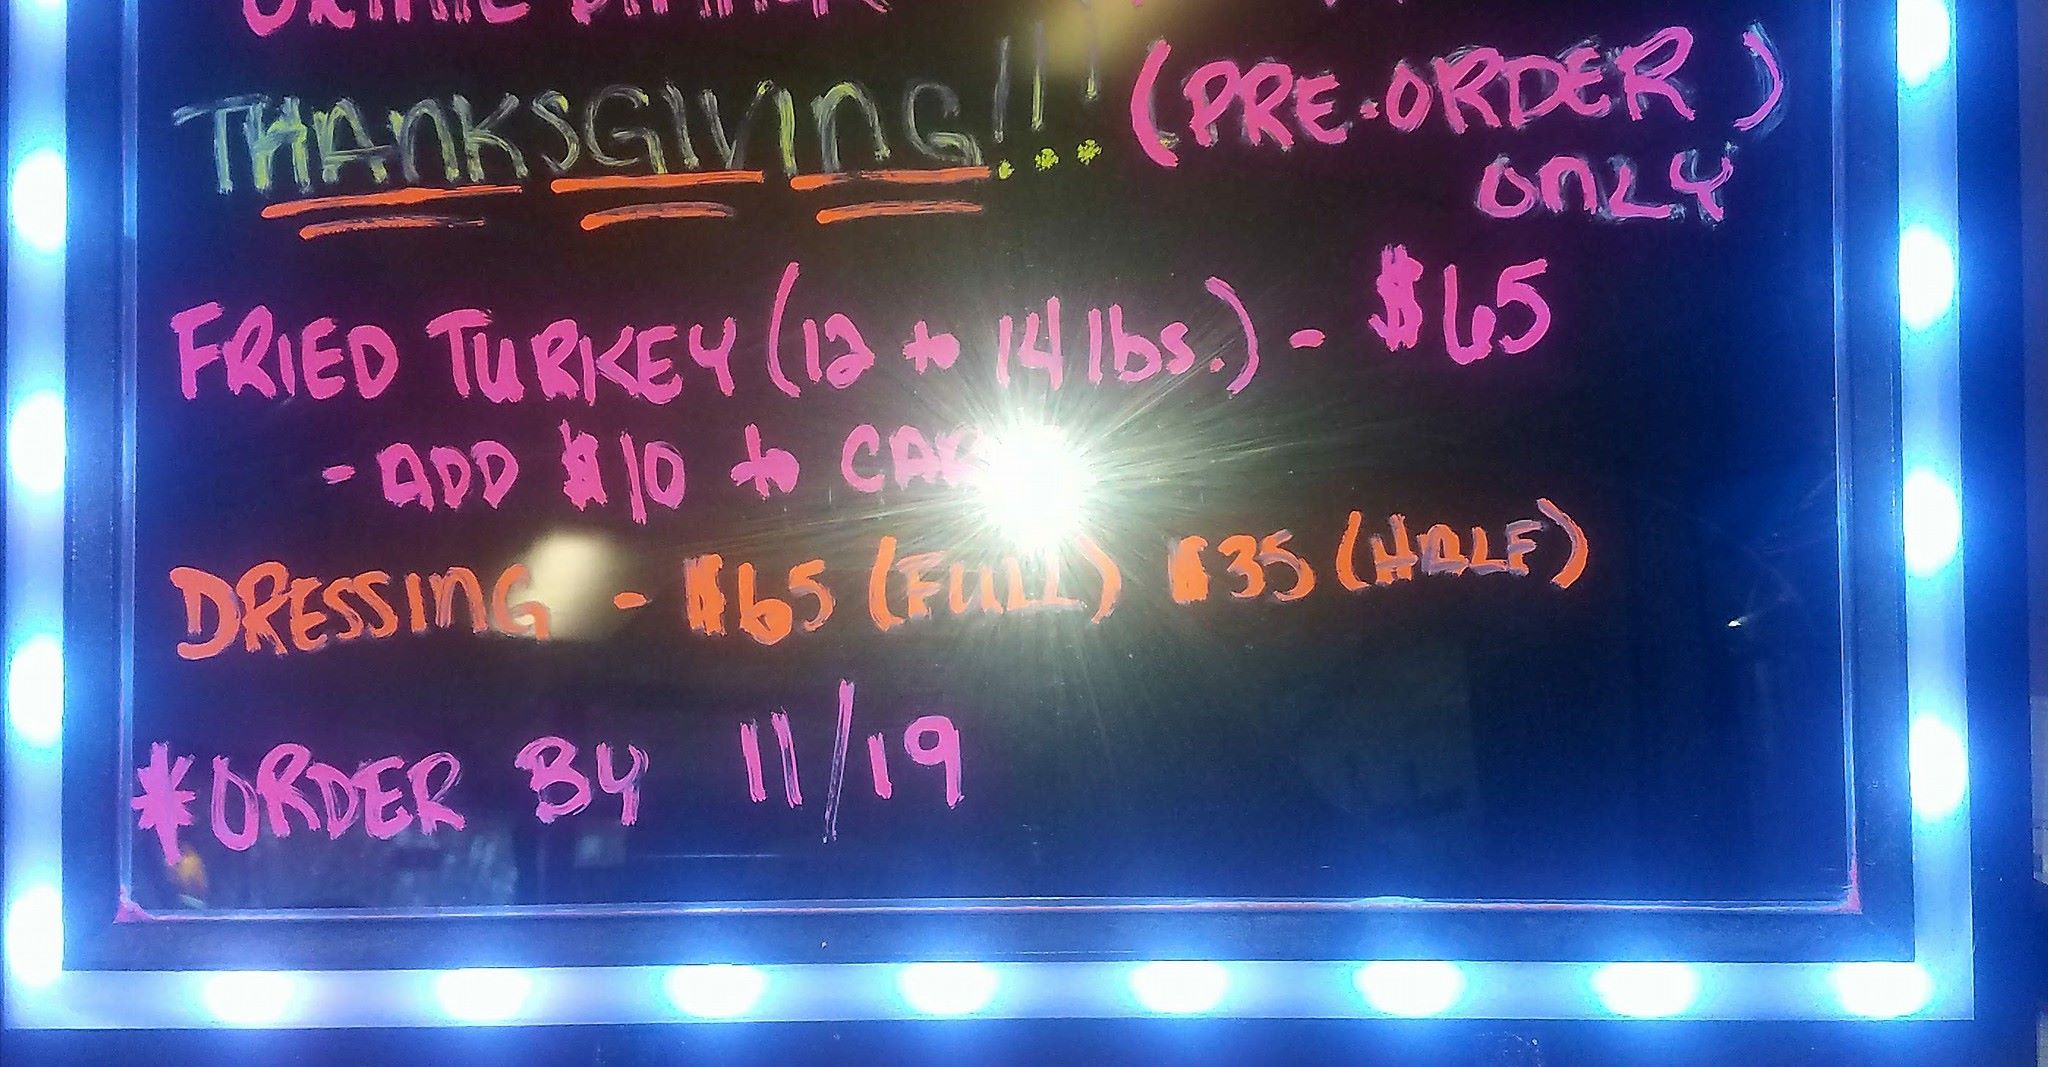 THANKSGIVING!!! (PRE-ORDER)
ONLY
FRIED TURKEY (12 to 14 lbs.) - $65
- ADD $10 to
DRESSING - $65 (FULL) $35 (HALF)
*ORDER BY 11/19